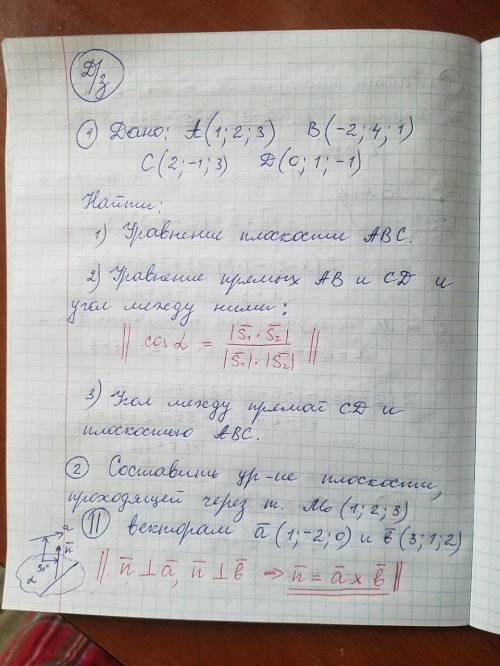 Д/з
① Дано: A(1; 2; 3) B(-2; 4; 1)
C(2; -1; 3) D(0; 1; -1)
Найти:
1) Уравнение плоскости ABC.
2) Уравнение прямых AB и CD и
угол между ними:
|| cos α = |S̄₁ · S̄₂| / |S̄₁| · |S̄₂| ||
3) Угол между прямой CD и
плоскостью ABC.
② Составить ур-ие плоскости,
проходящей через т. M₀(1; 2; 3)
|| векторам ā(1; -2; 0) и b̄(3; 1; 2)
|| n̄ ⊥ ā, n̄ ⊥ b̄ → n̄ = ā × b̄ ||
a
n̄
90°
α